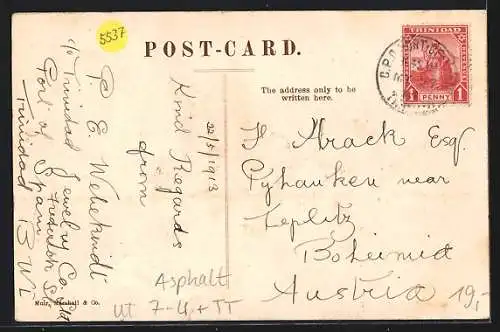 5537
POST-CARD.
TRINIDAD
1 PENNY 1
The address only to be
written here.
22/5/1913
Kind Regards
from
P. E. Wehekindt
c/o Trinidad Jewelry Co.
Frederick St
Port of Spain
Trinidad B W I
Esq.
near
Teplitz
Bohemia
Austria
19,-
Asphalt
Muir, Marshall & Co.